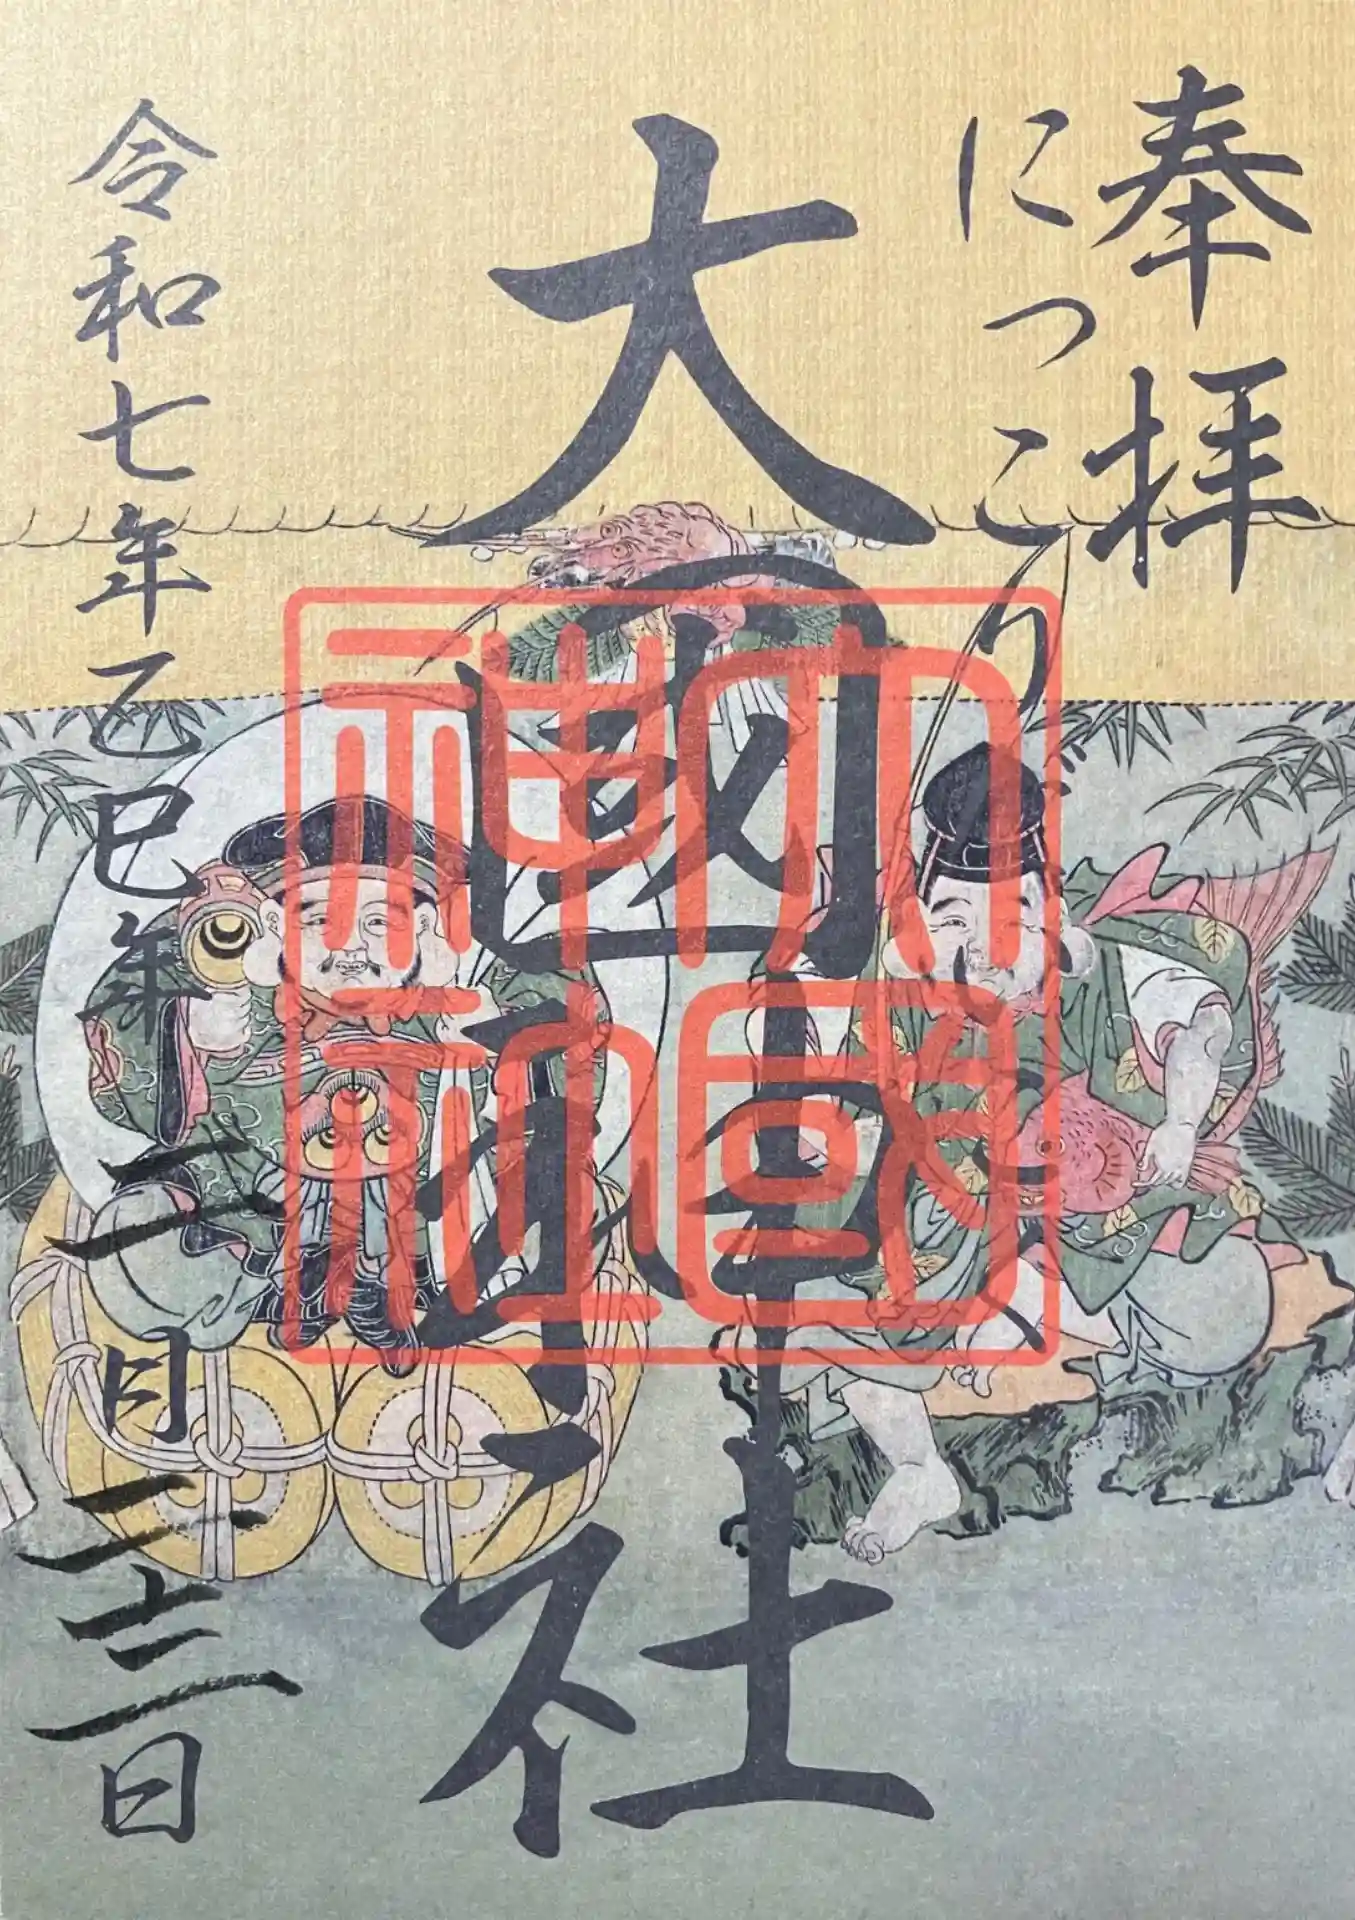 奉拝
にっこり
大国神社
大國
神社
令和七年乙巳年二月二十三日